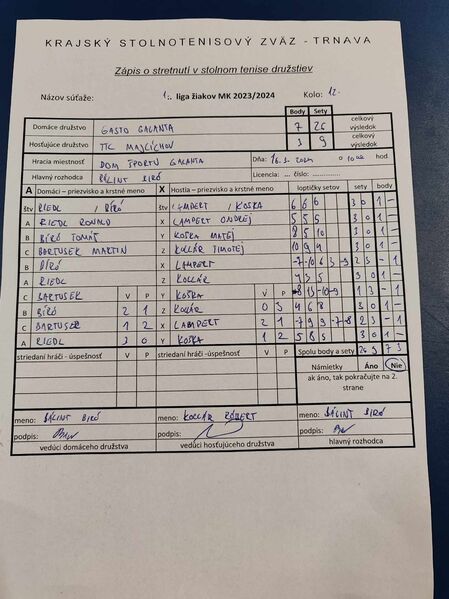 KRAJSKÝ STOLNOTENISOVÝ ZVÄZ - TRNAVA
Zápis o stretnutí v stolnom tenise družstiev
Názov súťaže: 1. liga žiakov MK 2023/2024 Kolo: 12.
Body Sety
Domáce družstvo GASTO GALANTA 7 26 celkový výsledok
Hosťujúce družstvo TTC MAJCICHOV 3 9 celkový výsledok
Hracia miestnosť DOM ŠPORTU GALANTA Dňa: 16.3.2024 o 10:00 hod.
Hlavný rozhodca BÁLINT BIRÓ Licencia: číslo:
A Domáci - priezvisko a krstné meno X Hostia - priezvisko a krstné meno loptičky setov sety body
štv RIEDL / BIRÓ štv LAMPERT / KOŠKA 6 6 6 3 0 1 -
A RIEDL RONALD X LAMPERT ONDREJ 5 5 5 3 0 1 -
B BIRÓ TOMÁŠ Y KOŠKA MATEJ 8 5 10 3 0 1 -
C BARTUSEK MARTIN Z KOLLÁR TIMOTEJ 10 9 4 3 0 1 -
B BIRÓ X LAMPERT -7 -10 6 3 -9 2 3 - 1
A RIEDL Z KOLLÁR 3 0 1 -
C BARTUSEK V P Y KOŠKA V P 1 3 - 1
B BIRÓ 2 1 Z KOLLÁR 0 3 4 6 8 3 0 1 -
C BARTUSEK 1 2 X LAMPERT 2 1 -7 9 9 -7 -8 2 3 - 1
A RIEDL 3 0 Y KOŠKA 1 2 5 8 5 3 0 1 -
striedaní hráči - úspešnosť V P striedaní hráči - úspešnosť V P Spolu body a sety 26 9 7 3
Námietky Áno Nie
ak áno, tak pokračujte na 2. strane
meno: BÁLINT BIRÓ meno: KOLLÁR RÓBERT meno: BÁLINT BIRÓ
podpis: podpis: podpis:
vedúci domáceho družstva vedúci hosťujúceho družstva hlavný rozhodca